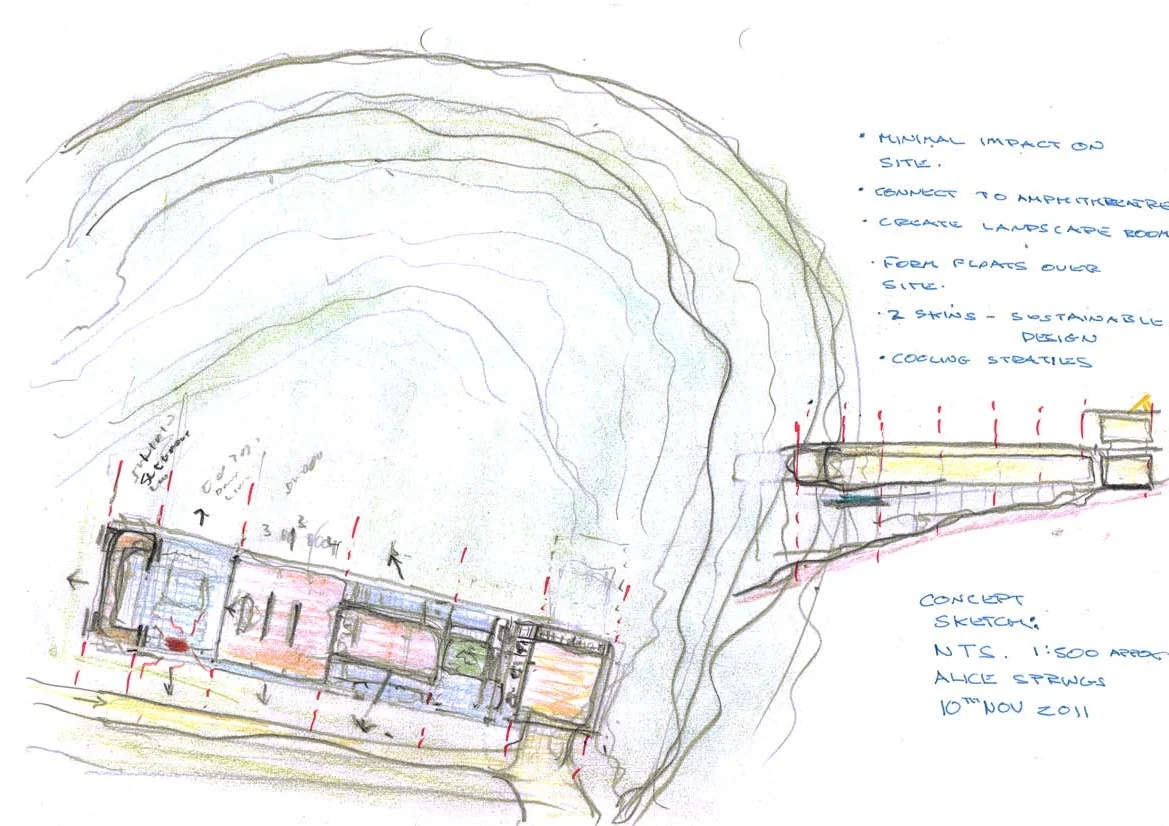 • MINIMAL IMPACT ON
SITE.
• CONNECT TO AMPHITHEATRE
• CREATE LANDSCAPE ROOM
• FORM FLOATS OVER
SITE.
• 2 SKINS - SUSTAINABLE
DESIGN
• COOLING STRATIES
CONCEPT
SKETCH:
NTS. 1:500 APPROX
ALICE SPRINGS
10TH NOV 2011